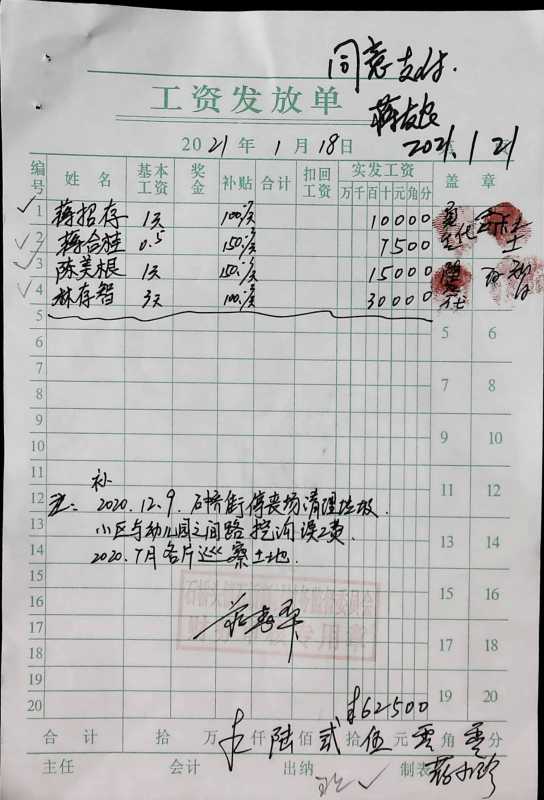 同意支付.
工资发放单
2021.1.21
2021年1月18日
编号 姓名 基本工资 奖金 补贴 合计 扣回工资 实发工资 盖章
万千百十元角分
1 蒋招存 1天 100/天 10000
2 蒋合桂 0.5 150/天 7500
3 陈美根 1天 150/天 15000
4 林存智 3天 100/天 30000
5 5 6
6
7 7 8
8
9 9 10
10
11 11 12
补
12 注: 2020.12.9. 石桥街停丧场清理垃圾.
13 小区与幼儿园之间路挖沟误工费. 13 14
14 2020.7月各片巡察土地.
15 15 16
16
17 17 18
18
19 19 20
20 ¥62500
合计 拾 万 仟 陆 佰 贰 拾 伍 元 零 角 零 分
主任 会计 出纳 制表